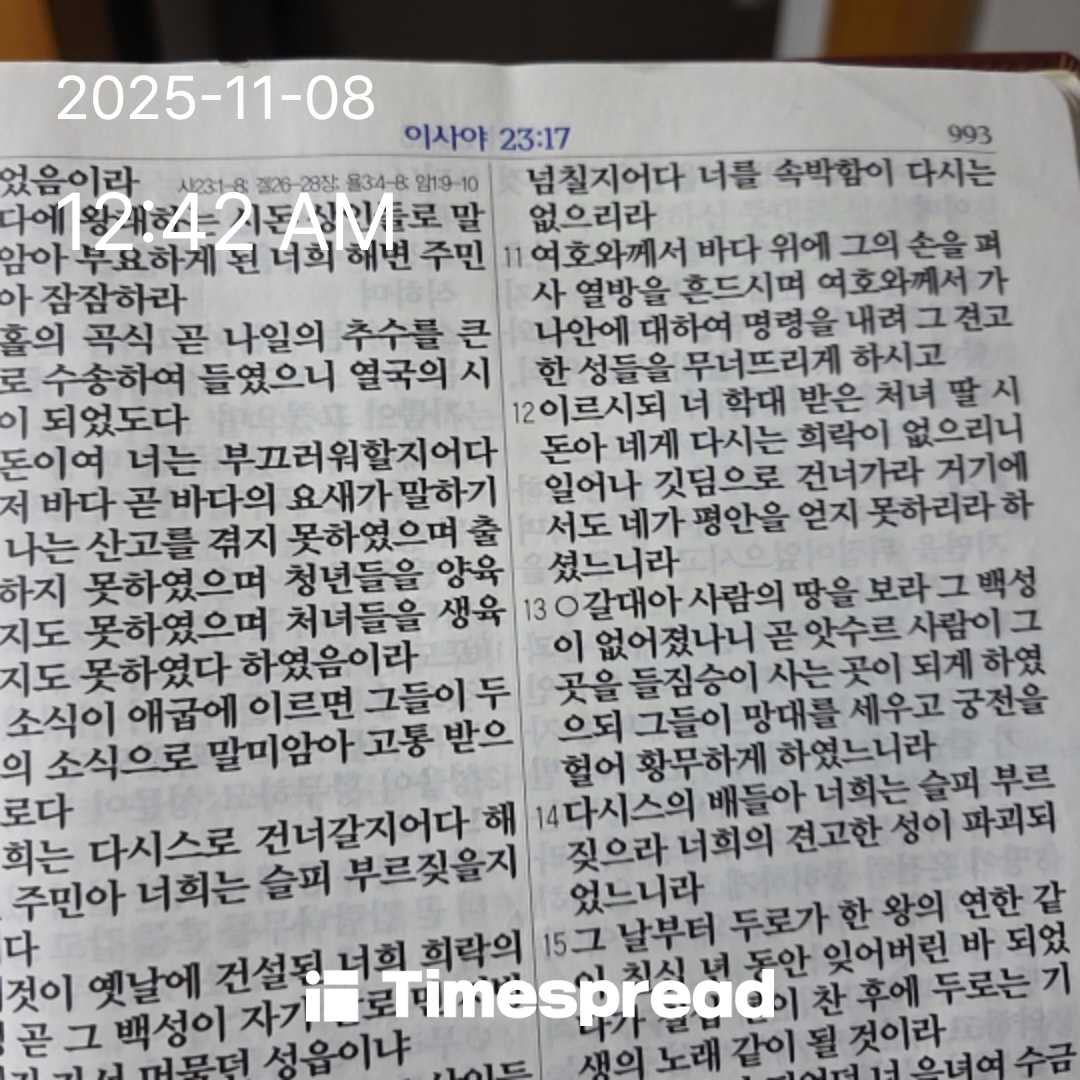 2025-11-08
12:42 AM
이사야 23:17
993
었음이라
시23:1-8; 겔26-28장; 욜3:4-8; 암1:9-10
다에 왕래하는 시돈 상인들로 말
암아 부요하게 된 너희 해변 주민
아 잠잠하라
홀의 곡식 곧 나일의 추수를 큰
로 수송하여 들였으니 열국의 시
이 되었도다
돈이여 너는 부끄러워할지어다
저 바다 곧 바다의 요새가 말하기
나는 산고를 겪지 못하였으며 출
하지 못하였으며 청년들을 양육
지도 못하였으며 처녀들을 생육
지도 못하였다 하였음이라
소식이 애굽에 이르면 그들이 두
의 소식으로 말미암아 고통 받으
로다
희는 다시스로 건너갈지어다 해
주민아 너희는 슬피 부르짖을지
다
것이 옛날에 건설된 너희 희락의
곧 그 백성이 자기
머물던 성읍이냐
넘칠지어다 너를 속박함이 다시는
없으리라
11 여호와께서 바다 위에 그의 손을 펴
사 열방을 흔드시며 여호와께서 가
나안에 대하여 명령을 내려 그 견고
한 성들을 무너뜨리게 하시고
12 이르시되 너 학대 받은 처녀 딸 시
돈아 네게 다시는 희락이 없으리니
일어나 깃딤으로 건너가라 거기에
서도 네가 평안을 얻지 못하리라 하
셨느니라
13 ○갈대아 사람의 땅을 보라 그 백성
이 없어졌나니 곧 앗수르 사람이 그
곳을 들짐승이 사는 곳이 되게 하였
으되 그들이 망대를 세우고 궁전을
헐어 황무하게 하였느니라
14 다시스의 배들아 너희는 슬피 부르
짖으라 너희의 견고한 성이 파괴되
었느니라
15 그 날부터 두로가 한 왕의 연한 같
이 칠십 년 동안 잊어버린 바 되었
다가 칠십 년이 찬 후에 두로는 기
생의 노래 같이 될 것이라
너 음녀여 수금
Timespread